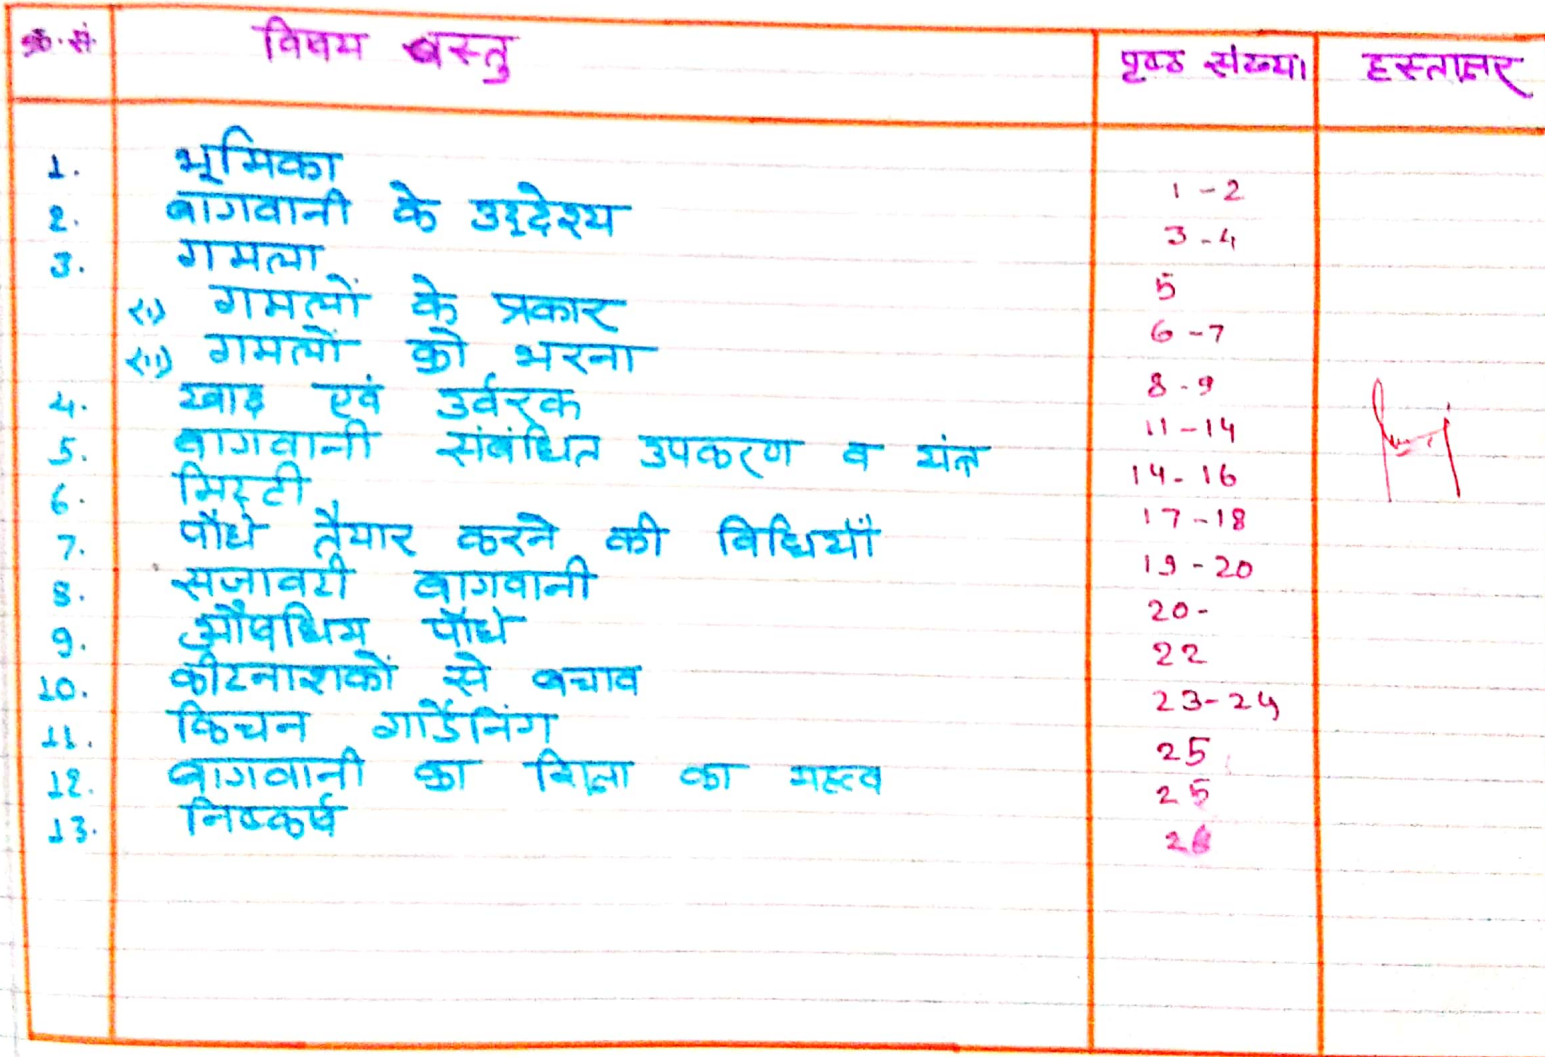 क्र.सं. विषय वस्तु पृष्ठ संख्या हस्ताक्षर
1. भूमिका 1-2
2. बागवानी के उद्देश्य 3-4
3. गमला 5
(i) गमलों के प्रकार 6-7
(ii) गमलों को भरना 8-9
4. खाद एवं उर्वरक 11-14
5. बागवानी संबंधित उपकरण व यंत्र 14-16
6. मिट्टी 17-18
7. पौधे तैयार करने की विधियाँ 19-20
8. सजावटी बागवानी 20-
9. औषधिय पौधे 22
10. कीटनाशकों से बचाव 23-24
11. किचन गार्डेनिंग 25
12. बागवानी का शिक्षा का महत्व 25
13. निष्कर्ष 26